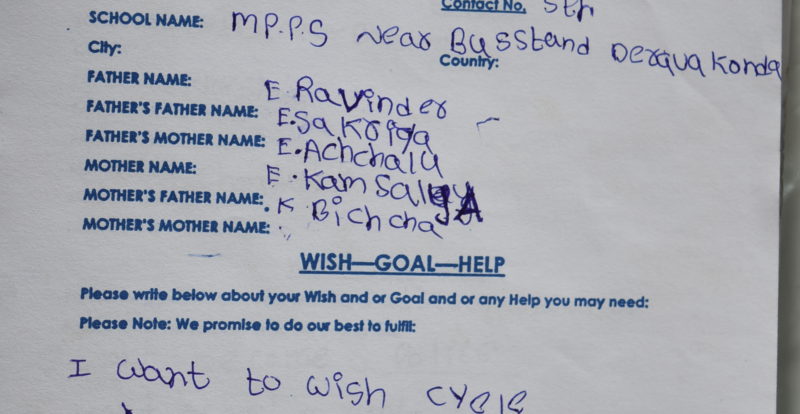 Contact No. 5th
SCHOOL NAME: M.P.P.S Near Busstand Derquakonda
City: Country:
FATHER NAME: E Ravinder
FATHER'S FATHER NAME: E.Sakriya
FATHER'S MOTHER NAME: E.Achchalu
MOTHER NAME: E.Kamsalya
MOTHER'S FATHER NAME: K Bichcha
MOTHER'S MOTHER NAME:
WISH—GOAL—HELP
Please write below about your Wish and or Goal and or any Help you may need:
Please Note: We promise to do our best to fulfil:
I want to wish cycle